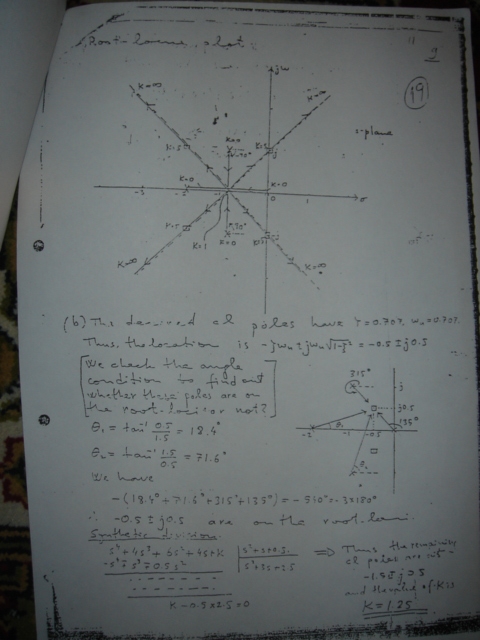 Root-locus plot:
9
19
jω
K=∞
K=∞
s-plane
K=5
K=5
K=0
j
K=0
K=0
-3
-2
-1
0
1
σ
K=5
K=1
K=0
K=5
K=∞
K=∞
(b) The desired cl poles have ζ=0.707, ωn=0.707.
Thus, the location is -ζωn±jωn√1-ζ² = -0.5±j0.5
We check the angle
condition to find out
whether these poles are on
the root-loci or not?
315°
j
j0.5
135°
-2
-1
-0.5
θ₁ = tan⁻¹ 0.5/1.5 = 18.4°
θ₂ = tan⁻¹ 1.5/0.5 = 71.6°
We have
-(18.4°+71.6°+315°+135°) = -540° = -3×180°
∴ -0.5±j0.5 are on the root-loci.
Synthetic division
s⁴+4s³+6s²+4s+K
s²+s+0.5
s²+3s+2.5
K-0.5×2.5=0
⇒ Thus the remaining
cl poles are at
-1.5±j0.5
and the value of K is
K=1.25